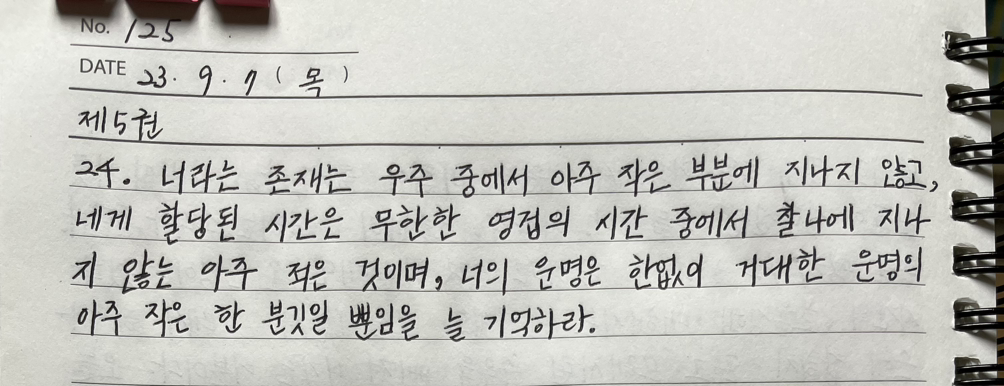 No. 125
DATE 23. 9. 7 ( 목 )
제5권
24. 너라는 존재는 우주 중에서 아주 작은 부분에 지나지 않고,
네게 할당된 시간은 무한한 영겁의 시간 중에서 찰나에 지나
지 않는 아주 적은 것이며, 너의 운명은 한없이 거대한 운명의
아주 작은 한 분깃일 뿐임을 늘 기억하라.